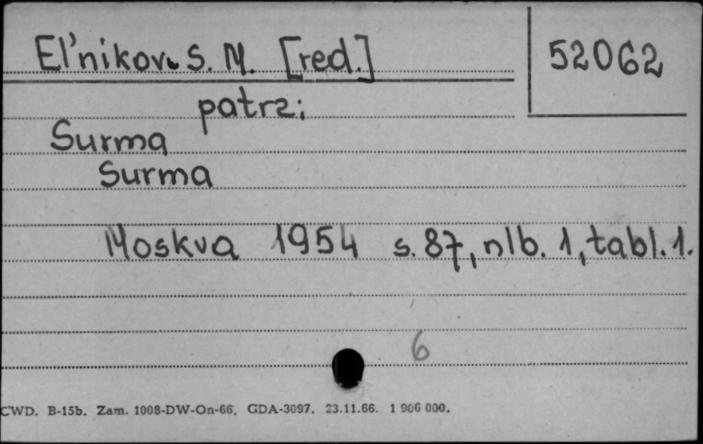 El'nikov S. M. [red.]
52062
patrz:
Surma
Surma
Moskva 1954 s. 87, nlb. 1, tabl. 1.
6
CWD. B-15b. Zam. 1008-DW-On-66. GDA-3097. 23.11.66. 1 906 000.